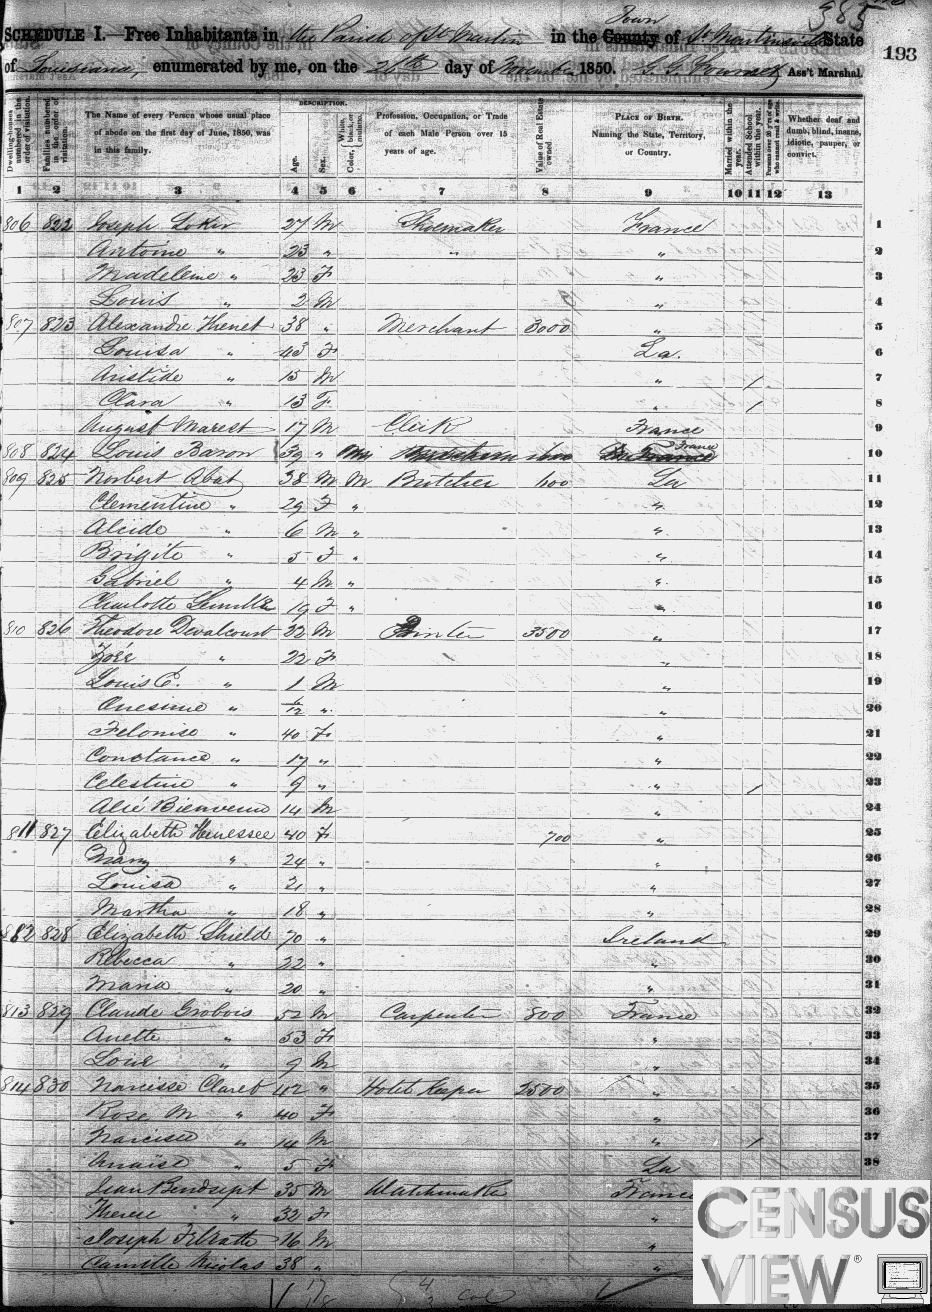 385
SCHEDULE I.—Free Inhabitants in the Parish of St Martin in the County Town of St Martinsville State
of Louisiana, enumerated by me, on the day of November 1850. Ass't Marshal.
193
DESCRIPTION.
Dwelling-houses numbered in the order of visitation.
Families numbered in the order of visitation.
The Name of every Person whose usual place of abode on the first day of June, 1850, was in this family.
Age.
Sex.
White, black, or mulatto.
Color,
Profession, Occupation, or Trade of each Male Person over 15 years of age.
Value of Real Estate owned
PLACE OF BIRTH. Naming the State, Territory, or Country.
Married within the year.
Attended School within the year.
Persons over 20 y'rs of age who cannot read & write.
Whether deaf and dumb, blind, insane, idiotic, pauper, or convict.
1 2 3 4 5 6 7 8 9 10 11 12 13
806 822 Joseph 27 M Shoemaker France 1
Antoine " 23 " " " 2
Madeleine " 23 F " 3
Louis " 2 M " 4
807 823 Alexandre Thenet 38 " Merchant 3000 " 5
Louisa " 43 F La. 6
Aristide " 15 M " 1 7
Clara " 13 F " 1 8
August Marest 17 M Clerk France 9
808 824 Louis Baron 39 " France 10
809 825 Norbert Abat 38 M M Butcher 400 La 11
Clementine " 29 F " " 12
Alcide " 6 M " " 13
Brigite " 5 F " " 14
Gabriel " 4 M " " 15
Charlotte 19 F " " 16
810 826 Theodore Devalcourt 32 M Printer 3500 " 17
Zoée " 22 F " 18
Louis C. " 1 M " 19
Onesime " 6/12 " " 20
Felonise " 40 F " 21
Constance " 17 " " 22
Celestine " 9 " " 1 23
Alcé Bienvenu 14 M " 24
811 827 Elizabeth Henessee 40 F 700 " 25
Mary " 24 " " 26
Louisa " 21 " " 27
Martha " 18 " " 28
812 828 Elizabeth Shield 70 " Ireland 29
Rebecca " 22 " " 30
Maria " 20 " " 31
813 829 Claude Grobois 52 M Carpenter 800 France 32
Anette " 53 F " 33
Louis " 9 M " 34
814 830 Narcisse Claret 42 " Hotel Keeper 2500 " 35
Rose M " 40 F " 36
Narcisse " 14 M " 1 37
Anaïse " 5 F La 38
Jean Bendsept 35 M Watchmaker France
Therese " 32 F "
Joseph Filrath 16 M "
Camille Nicolas 38 " "
CENSUS
VIEW ®